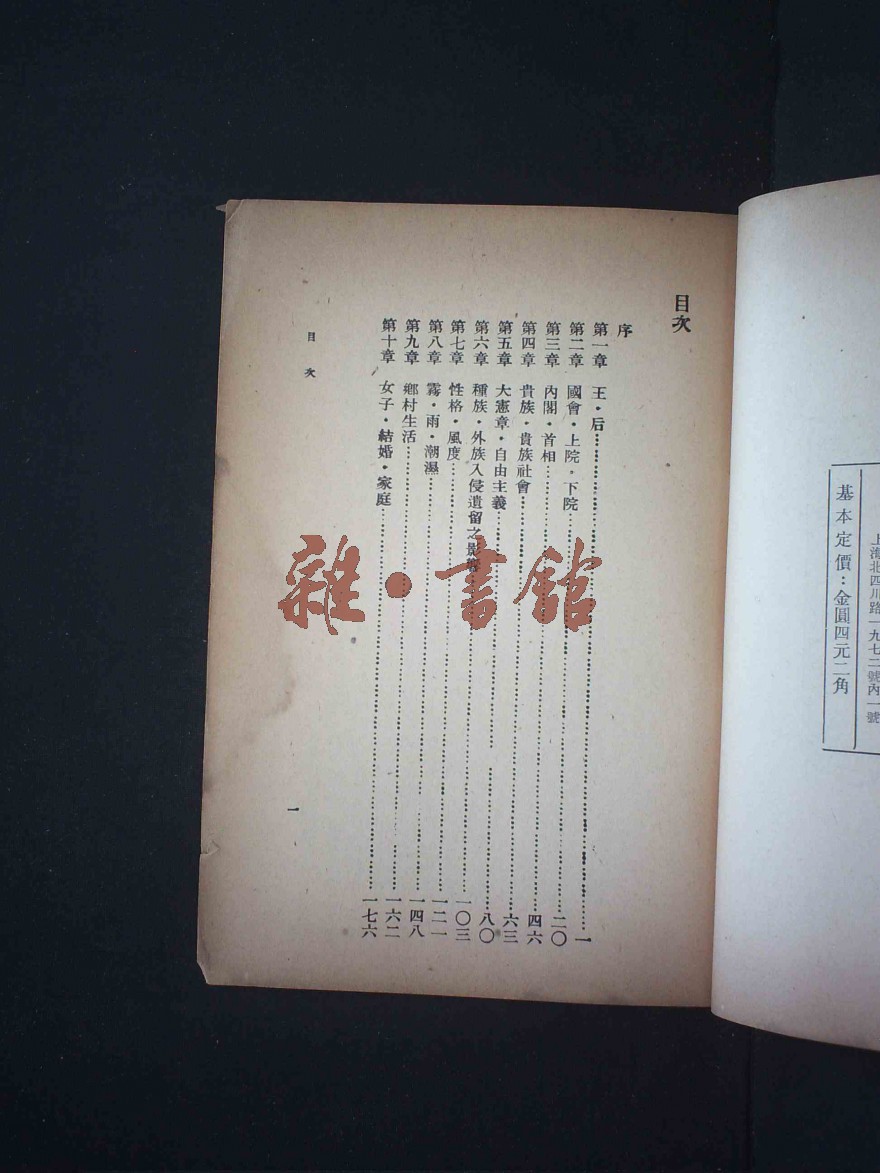 上海北四川路一九七二號內一號
基本定價：金圓四元二角
目次
序
第一章 王・后……一
第二章 國會・上院・下院……二〇
第三章 內閣・首相……四六
第四章 貴族・貴族社會……六三
第五章 大憲章・自由主義……八〇
第六章 種族・外族入侵遺留之影響……一〇三
第七章 性格・風度……一二一
第八章 霧・雨・潮濕……一四八
第九章 鄉村生活……一六二
第十章 女子・結婚・家庭……一七六
目次
一
雜・書館